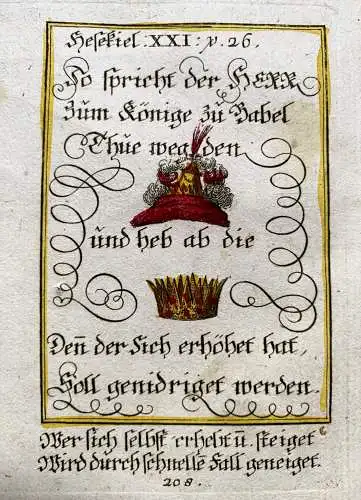 Hesekiel. XXI: v. 26.
So spricht der HERR
Zum Könige zu Babel
Thue weg den
und heb ab die
Deñ der sich erhöhet hat,
Soll genidriget werden.
Wer sich selbst erhebt ū. steiget
Wird durch schnelle Fall geneiget.
208.